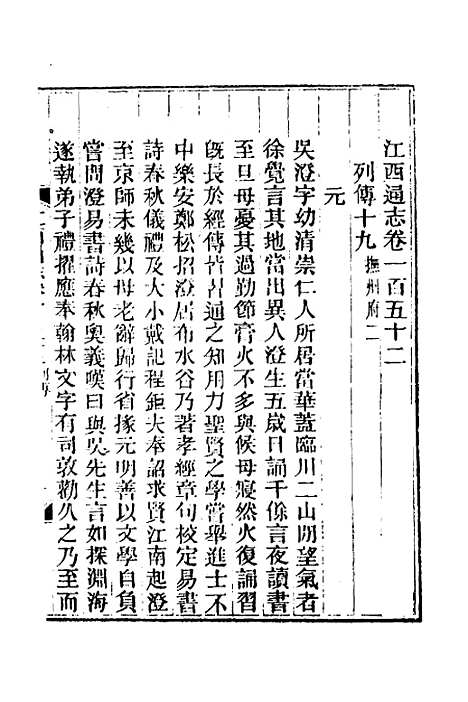 江西通志卷一百五十二
列傳十九 撫州府二
元
吳澄字幼清崇仁人所居當華蓋臨川二山間望氣者
徐覺言其地當出異人澄生五歲日誦千餘言夜讀書
至旦母憂其過勤節膏火不多與候母寢然火復誦習
旣長於經傳皆習通之知用力聖賢之學嘗舉進士不
中樂安鄭松招澄居布水谷乃著孝經章句校定易書
詩春秋儀禮及大小戴記程鉅夫奉詔求賢江南起澄
至京師未幾以母老辭歸行省掾元明善以文學自負
嘗問澄易書詩春秋奧義嘆曰與吳先生言如探淵海
遂執弟子禮擢應奉翰林文字有司敦勸久之乃至而